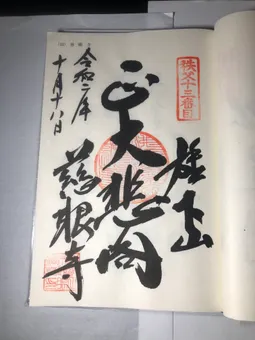 秩父十三番目
旗下山
大悲閣
慈眼寺
令和二年
十月十八日